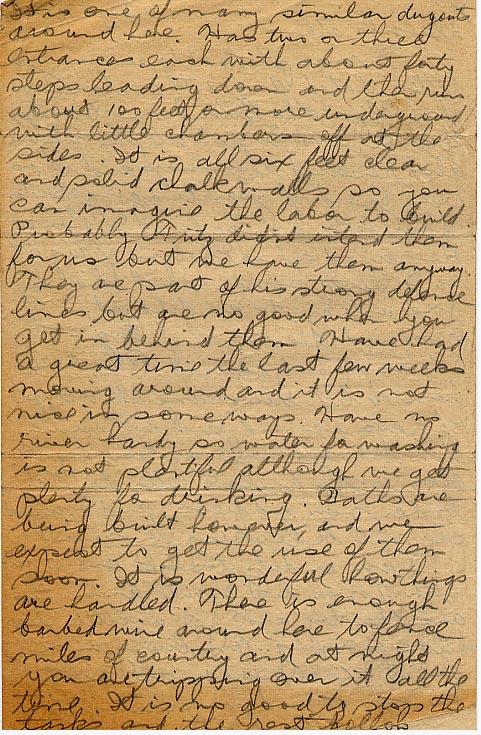 It is one of many similar dugouts
around here. Has two or three
entrances each with about forty
steps leading down and then run
about 100 feet or more underground
with little chambers off at the
sides. It is all six feet clear
and solid chalk walls so you
can imagine the labor to build.
Probably Fritz didn't intend them
for us but we have them anyway.
They are part of his strong defence
lines but are no good when you
get in behind them. Have had
a great time the last few weeks
moving around and it is not
nice in some ways. Have no
river handy so water for washing
is not plentiful although we get
plenty for drinking. Baths are
being built however, and we
expect to get the use of them
soon. It is wonderful how things
are handled. There is enough
barbed wire around here to fence
miles of country and at night
you are tripping over it all the
time. It is no good to stop the
tanks and the rest follow